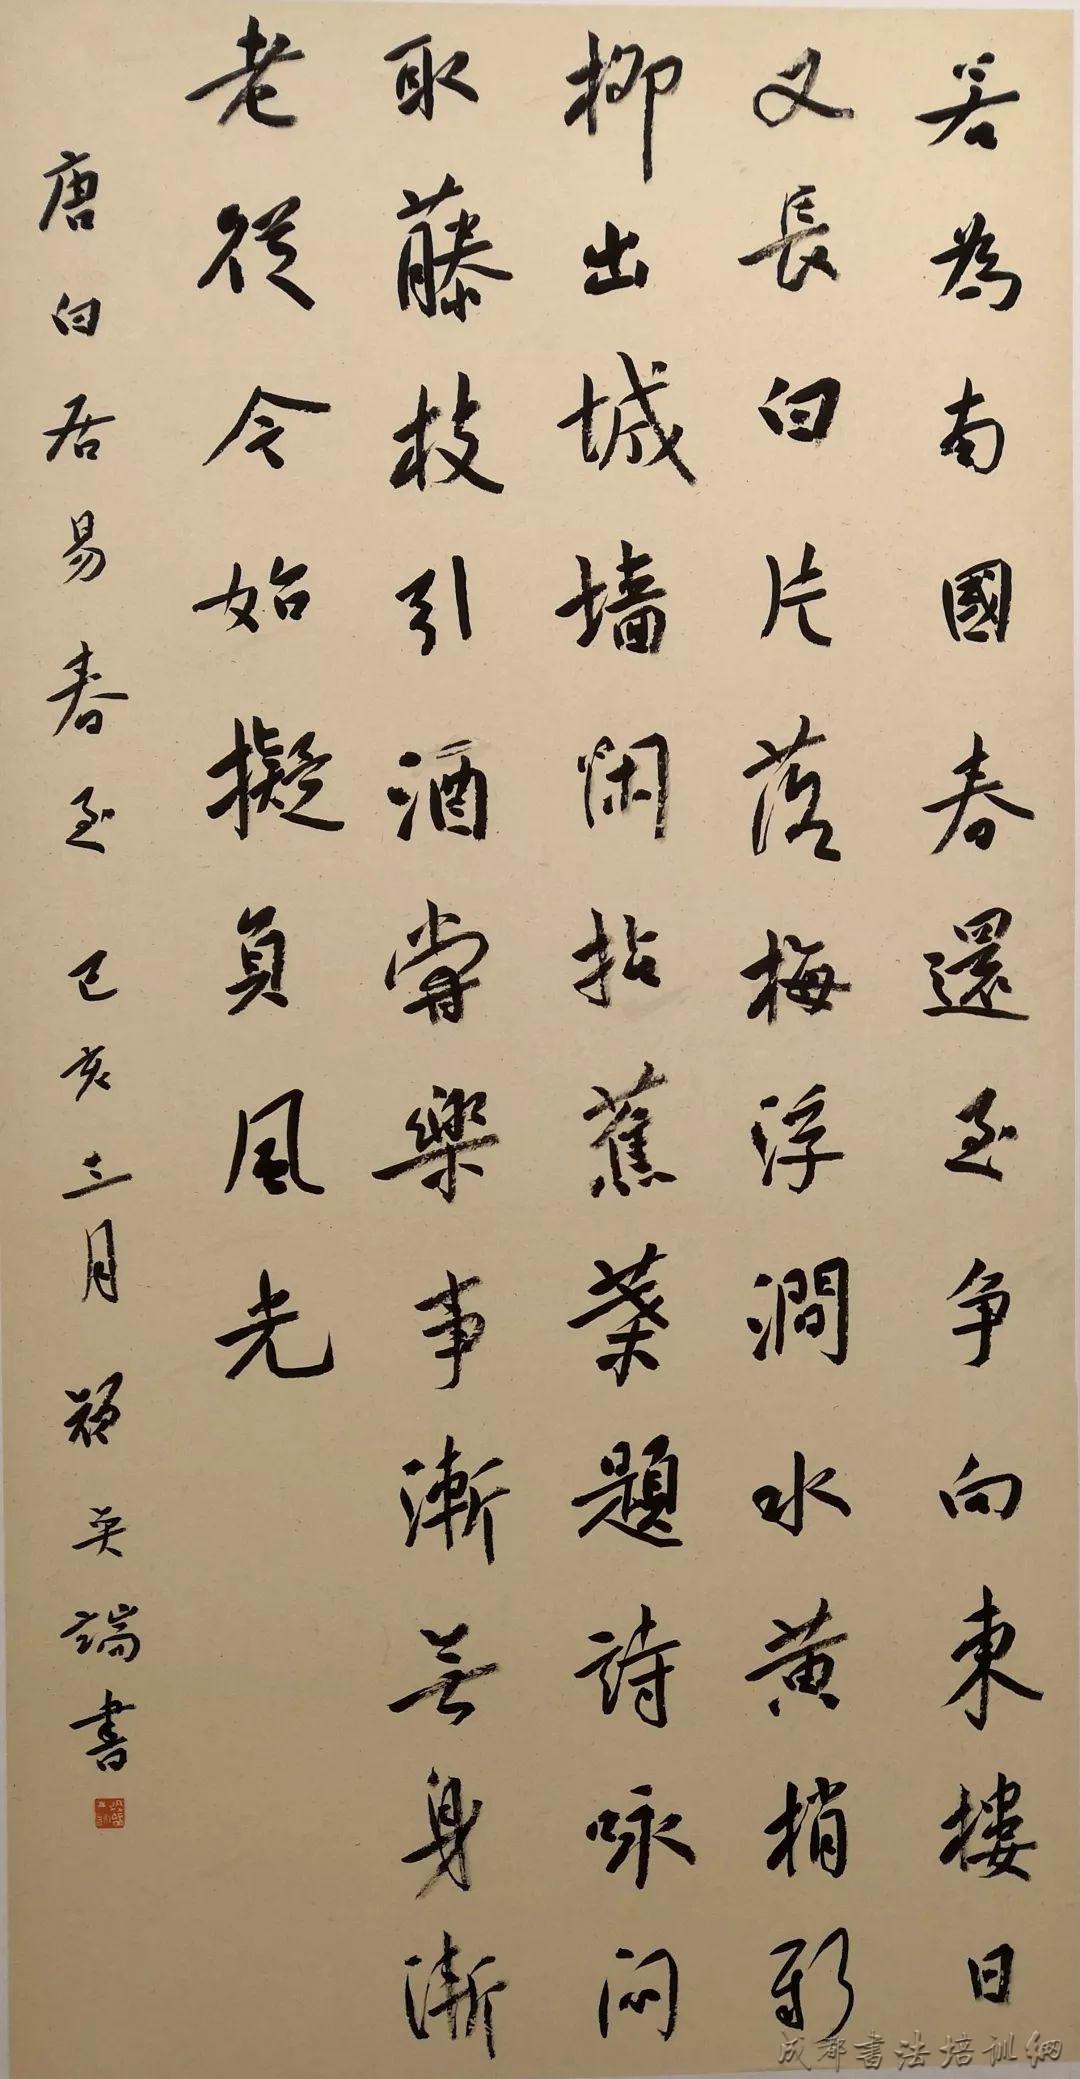 若為南國春還至争向東樓日
又長白片落梅浮澗水黄梢新
柳出城墙闲拈蕉葉題詩咏闷
取藤枝引酒嘗樂事漸無身漸
老從今始擬負風光
唐白居易春至 己亥三月 端書
成都書法培训網